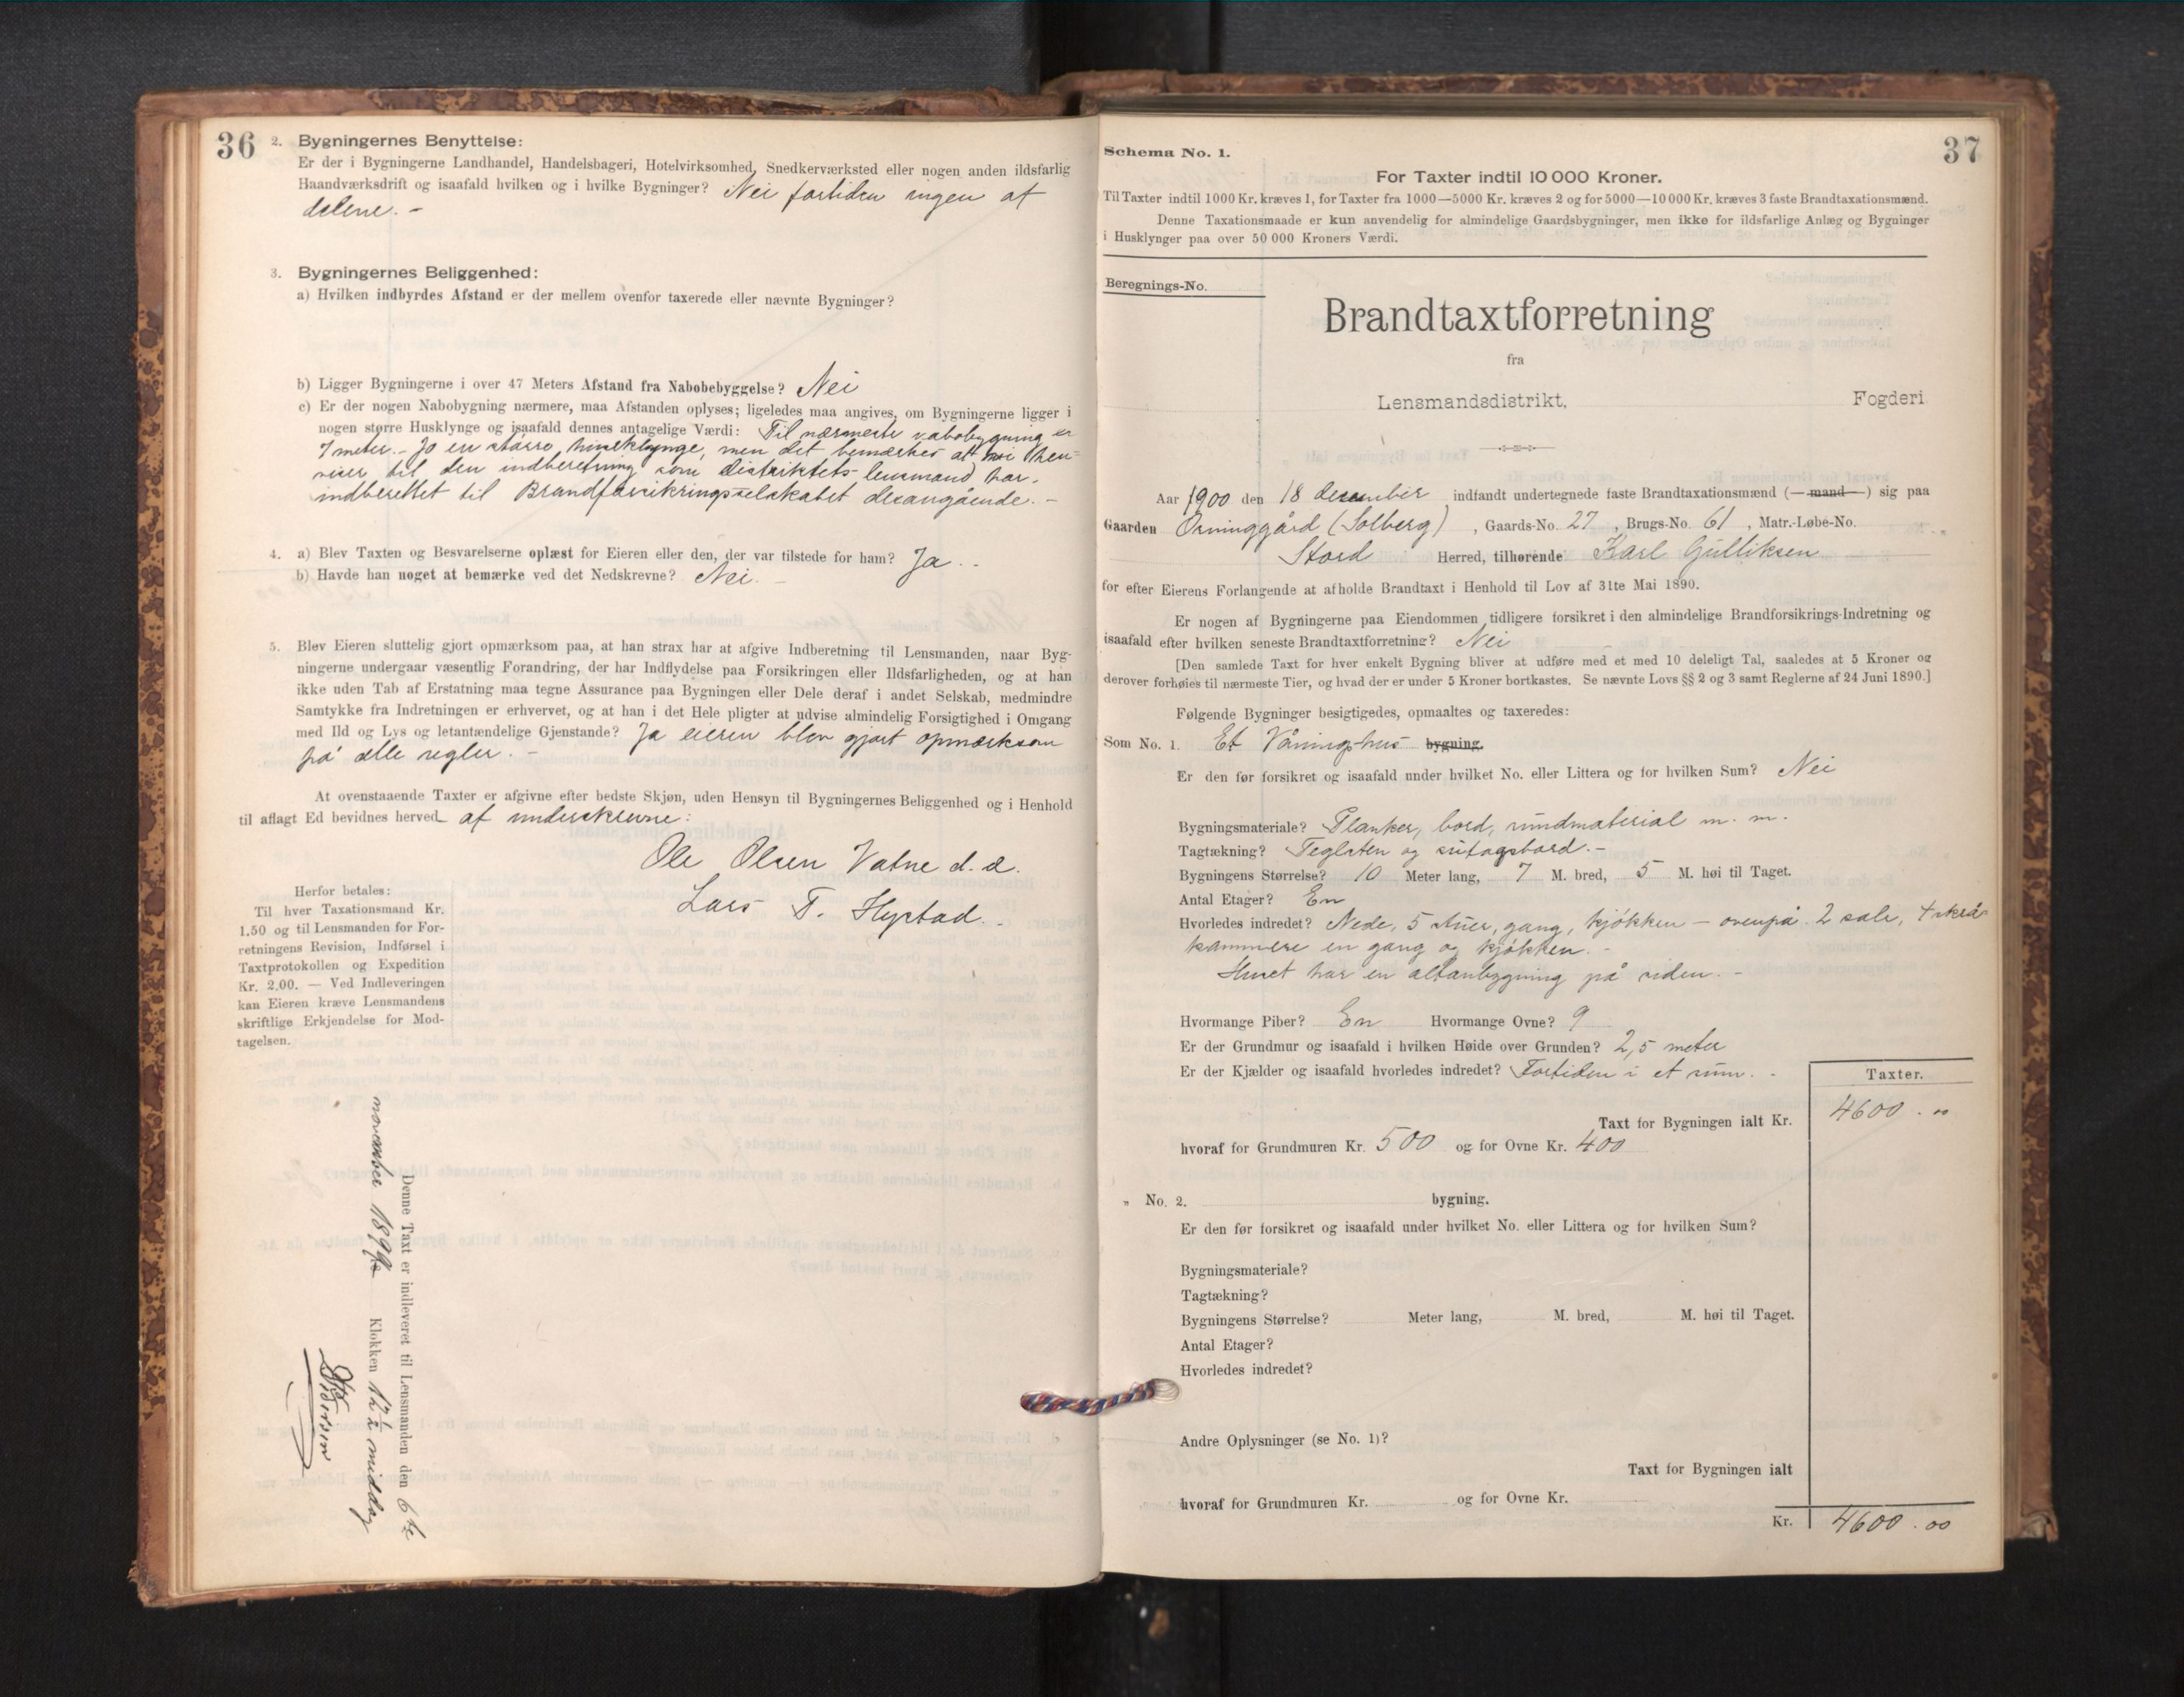 36
2. Bygningernes Benyttelse:
Er der i Bygningerne Landhandel, Handelsbageri, Hotelvirksomhed, Snedkerværksted eller nogen anden ildsfarlig
Haandværksdrift og isaafald hvilken og i hvilke Bygninger? Nei fortiden ingen af
delene. –
3. Bygningernes Beliggenhed:
a) Hvilken indbyrdes Afstand er der mellem ovenfor taxerede eller nævnte Bygninger?
b) Ligger Bygningerne i over 47 Meters Afstand fra Nabobebyggelse? Nei
c) Er der nogen Nabobygning nærmere, maa Afstanden oplyses; ligeledes maa angives, om Bygningerne ligger i
nogen større Husklynge og isaafald dennes antagelige Værdi: Til nærmeste nabobygning er
7 meter. – Jo en større huseklynge, men det bemærkes att vi hen-
viser til den indberetning som distriktets lensmand har
indberettet til Brandforsikringsselskabet desangående. –
4. a) Blev Taxten og Besvarelserne oplæst for Eieren eller den, der var tilstede for ham? Ja. –
b) Havde han noget at bemærke ved det Nedskrevne? Nei. –
5. Blev Eieren sluttelig gjort opmærksom paa, at han strax har at afgive Indberetning til Lensmanden, naar Byg-
ningerne undergaar væsentlig Forandring, der har Indflydelse paa Forsikringen eller Ildsfarligheden, og at han
ikke uden Tab af Erstatning maa tegne Assurance paa Bygningen eller Dele deraf i andet Selskab, medmindre
Samtykke fra Indretningen er erhvervet, og at han i det Hele pligter at udvise almindelig Forsigtighed i Omgang
med Ild og Lys og letantændelige Gjenstande? Ja eieren blev gjort opmærksom
på alle regler. –
At ovenstaaende Taxter er afgivne efter bedste Skjøn, uden Hensyn til Bygningernes Beliggenhed og i Henhold
til aflagt Ed bevidnes herved af underskrevne:
Ole Olsen Vatne d. æ.
Lars T. Hystad. –
Herfor betales:
Til hver Taxationsmand Kr.
1.50 og til Lensmanden for For-
retningens Revision, Indførsel i
Taxtprotokollen og Expedition
Kr. 2.00. — Ved Indleveringen
kan Eieren kræve Lensmandens
skriftlige Erkjendelse for Mod-
tagelsen.
Denne Taxt er indleveret til Lensmanden den 6te
november 1899 Klokken 12½ middag
37
Schema No. 1.
For Taxter indtil 10 000 Kroner.
Til Taxter indtil 1000 Kr. kræves 1, for Taxter fra 1000—5000 Kr. kræves 2 og for 5000—10 000 Kr. kræves 3 faste Brandtaxationsmænd.
Denne Taxationsmaade er kun anvendelig for almindelige Gaardsbygninger, men ikke for ildsfarlige Anlæg og Bygninger
i Husklynger paa over 50 000 Kroners Værdi.
Beregnings-No.
Brandtaxtforretning
fra
Lensmandsdistrikt, Fogderi
Aar 1900 den 18 december indfandt undertegnede faste Brandtaxationsmænd (—mand—) sig paa
Gaarden Orninggård (Solberg), Gaards-No. 27, Brugs-No. 61, Matr.-Løbe-No.
Stord Herred, tilhørende Karl Gulliksen
for efter Eierens Forlangende at afholde Brandtaxt i Henhold til Lov af 31te Mai 1890.
Er nogen af Bygningerne paa Eiendommen tidligere forsikret i den almindelige Brandforsikrings-Indretning og
isaafald efter hvilken seneste Brandtaxtforretning? Nei
[Den samlede Taxt for hver enkelt Bygning bliver at udføre med et med 10 deleligt Tal, saaledes at 5 Kroner og
derover forhøies til nærmeste Tier, og hvad der er under 5 Kroner bortkastes. Se nævnte Lovs §§ 2 og 3 samt Reglerne af 24 Juni 1890.]
Følgende Bygninger besigtigedes, opmaaltes og taxeredes:
Som No. 1. Et Våninghus bygning.
Er den før forsikret og isaafald under hvilket No. eller Littera og for hvilken Sum? Nei
Bygningsmateriale? Planker, bord, rundmaterial m. m.
Tagtækning? Teglsten og sutagsbord. –
Bygningens Størrelse? 10 Meter lang, 7 M. bred, 5 M. høi til Taget.
Antal Etager? En
Hvorledes indredet? Nede, 5 stuer, gang, kjøkken – ovenpå 2 sale, 4 skrå-
kammere en gang og kjøkken. –
Huset har en altanbygning på siden. –
Hvormange Piber? En Hvormange Ovne? 9
Er der Grundmur og isaafald i hvilken Høide over Grunden? 2,5 meter
Er der Kjælder og isaafald hvorledes indredet? Fortiden i et rum. –
Taxter.
Taxt for Bygningen ialt Kr. 4600.00
hvoraf for Grundmuren Kr. 500 og for Ovne Kr. 400
" No. 2. bygning.
Er den før forsikret og isaafald under hvilket No. eller Littera og for hvilken Sum?
Bygningsmateriale?
Tagtækning?
Bygningens Størrelse? Meter lang, M. bred, M. høi til Taget.
Antal Etager?
Hvorledes indredet?
Andre Oplysninger (se No. 1)?
Taxt for Bygningen ialt
hvoraf for Grundmuren Kr. og for Ovne Kr.
Kr. 4600.00